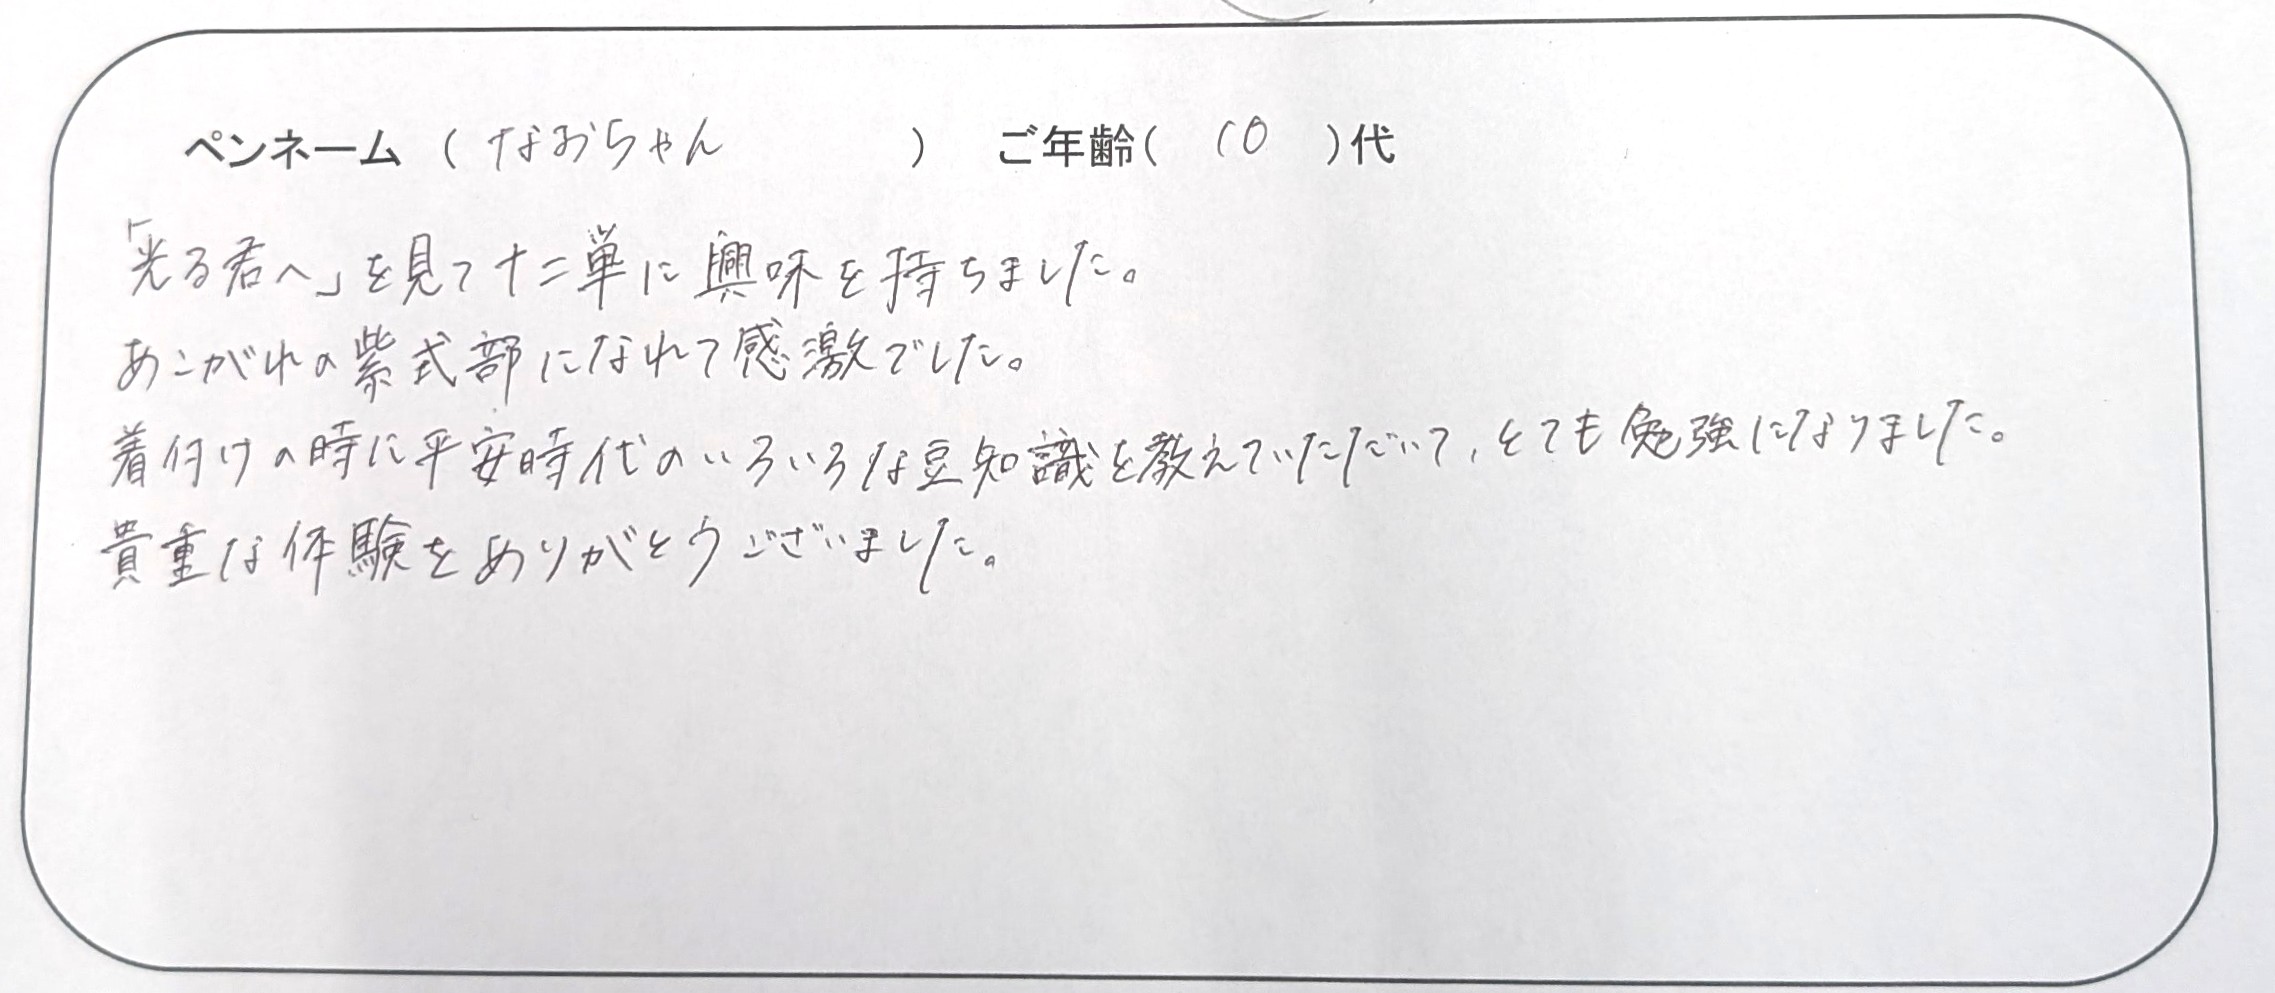 ペンネーム（なおちゃん　　　）　ご年齢（　10　）代
「光る君へ」を見て十二単に興味を持ちました。
あこがれの紫式部になれて感激でした。
着付けの時に平安時代のいろいろな豆知識を教えていただいて、とても勉強になりました。
貴重な体験をありがとうございました。